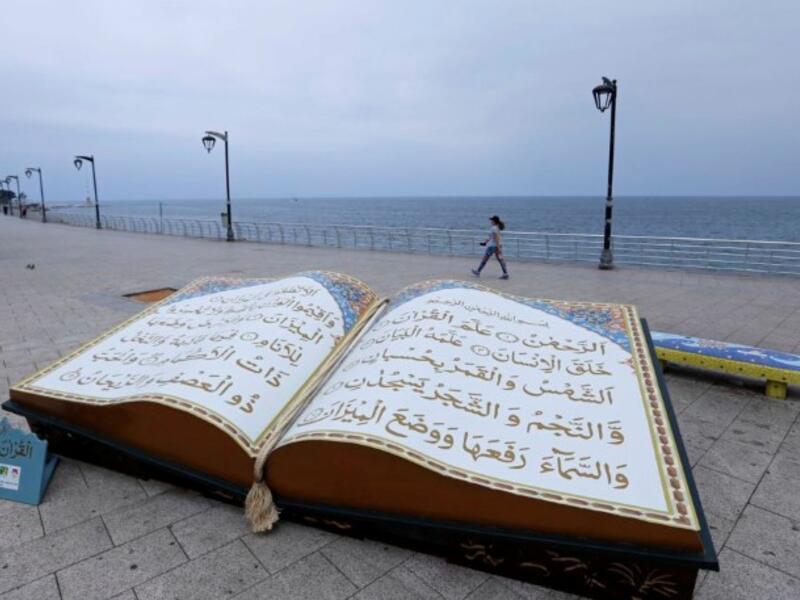 بسم الله الرحمن الرحيم
الرَّحْمَنُ ۝ عَلَّمَ القُرْآنَ ۝
خَلَقَ الْاِنْسَانَ ۝ عَلَّمَهُ البَيَانَ ۝
الشَّمْسُ وَالْقَمَرُ بِحُسْبَانٍ
وَّالنَّجْمُ وَ الشَّجَرُ يَسْجُدٰنِ
وَالسَّمَآءَ رَفَعَهَا وَوَضَعَ الْمِيْزَانَ
وَأَقِيْمُوا
الْمِيْزَانَ
لِلْأَنَامِ
ذَاتُ الْأَكْمَامِ وَالْحَبُّ
ذُو الْعَصْفِ وَالرَّيْحَانُ
القرآن